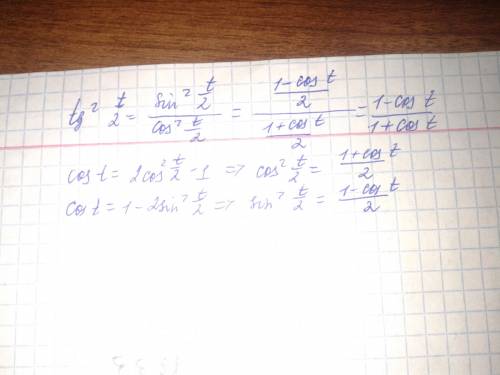 tg² t/2 = (sin² t/2)/(cos² t/2) = ((1-cos t)/2)/((1+cos t)/2) = (1-cos t)/(1+cos t)
cos t = 2cos² t/2 - 1 => cos² t/2 = (1+cos t)/2
cos t = 1 - 2sin² t/2 => sin² t/2 = (1-cos t)/2